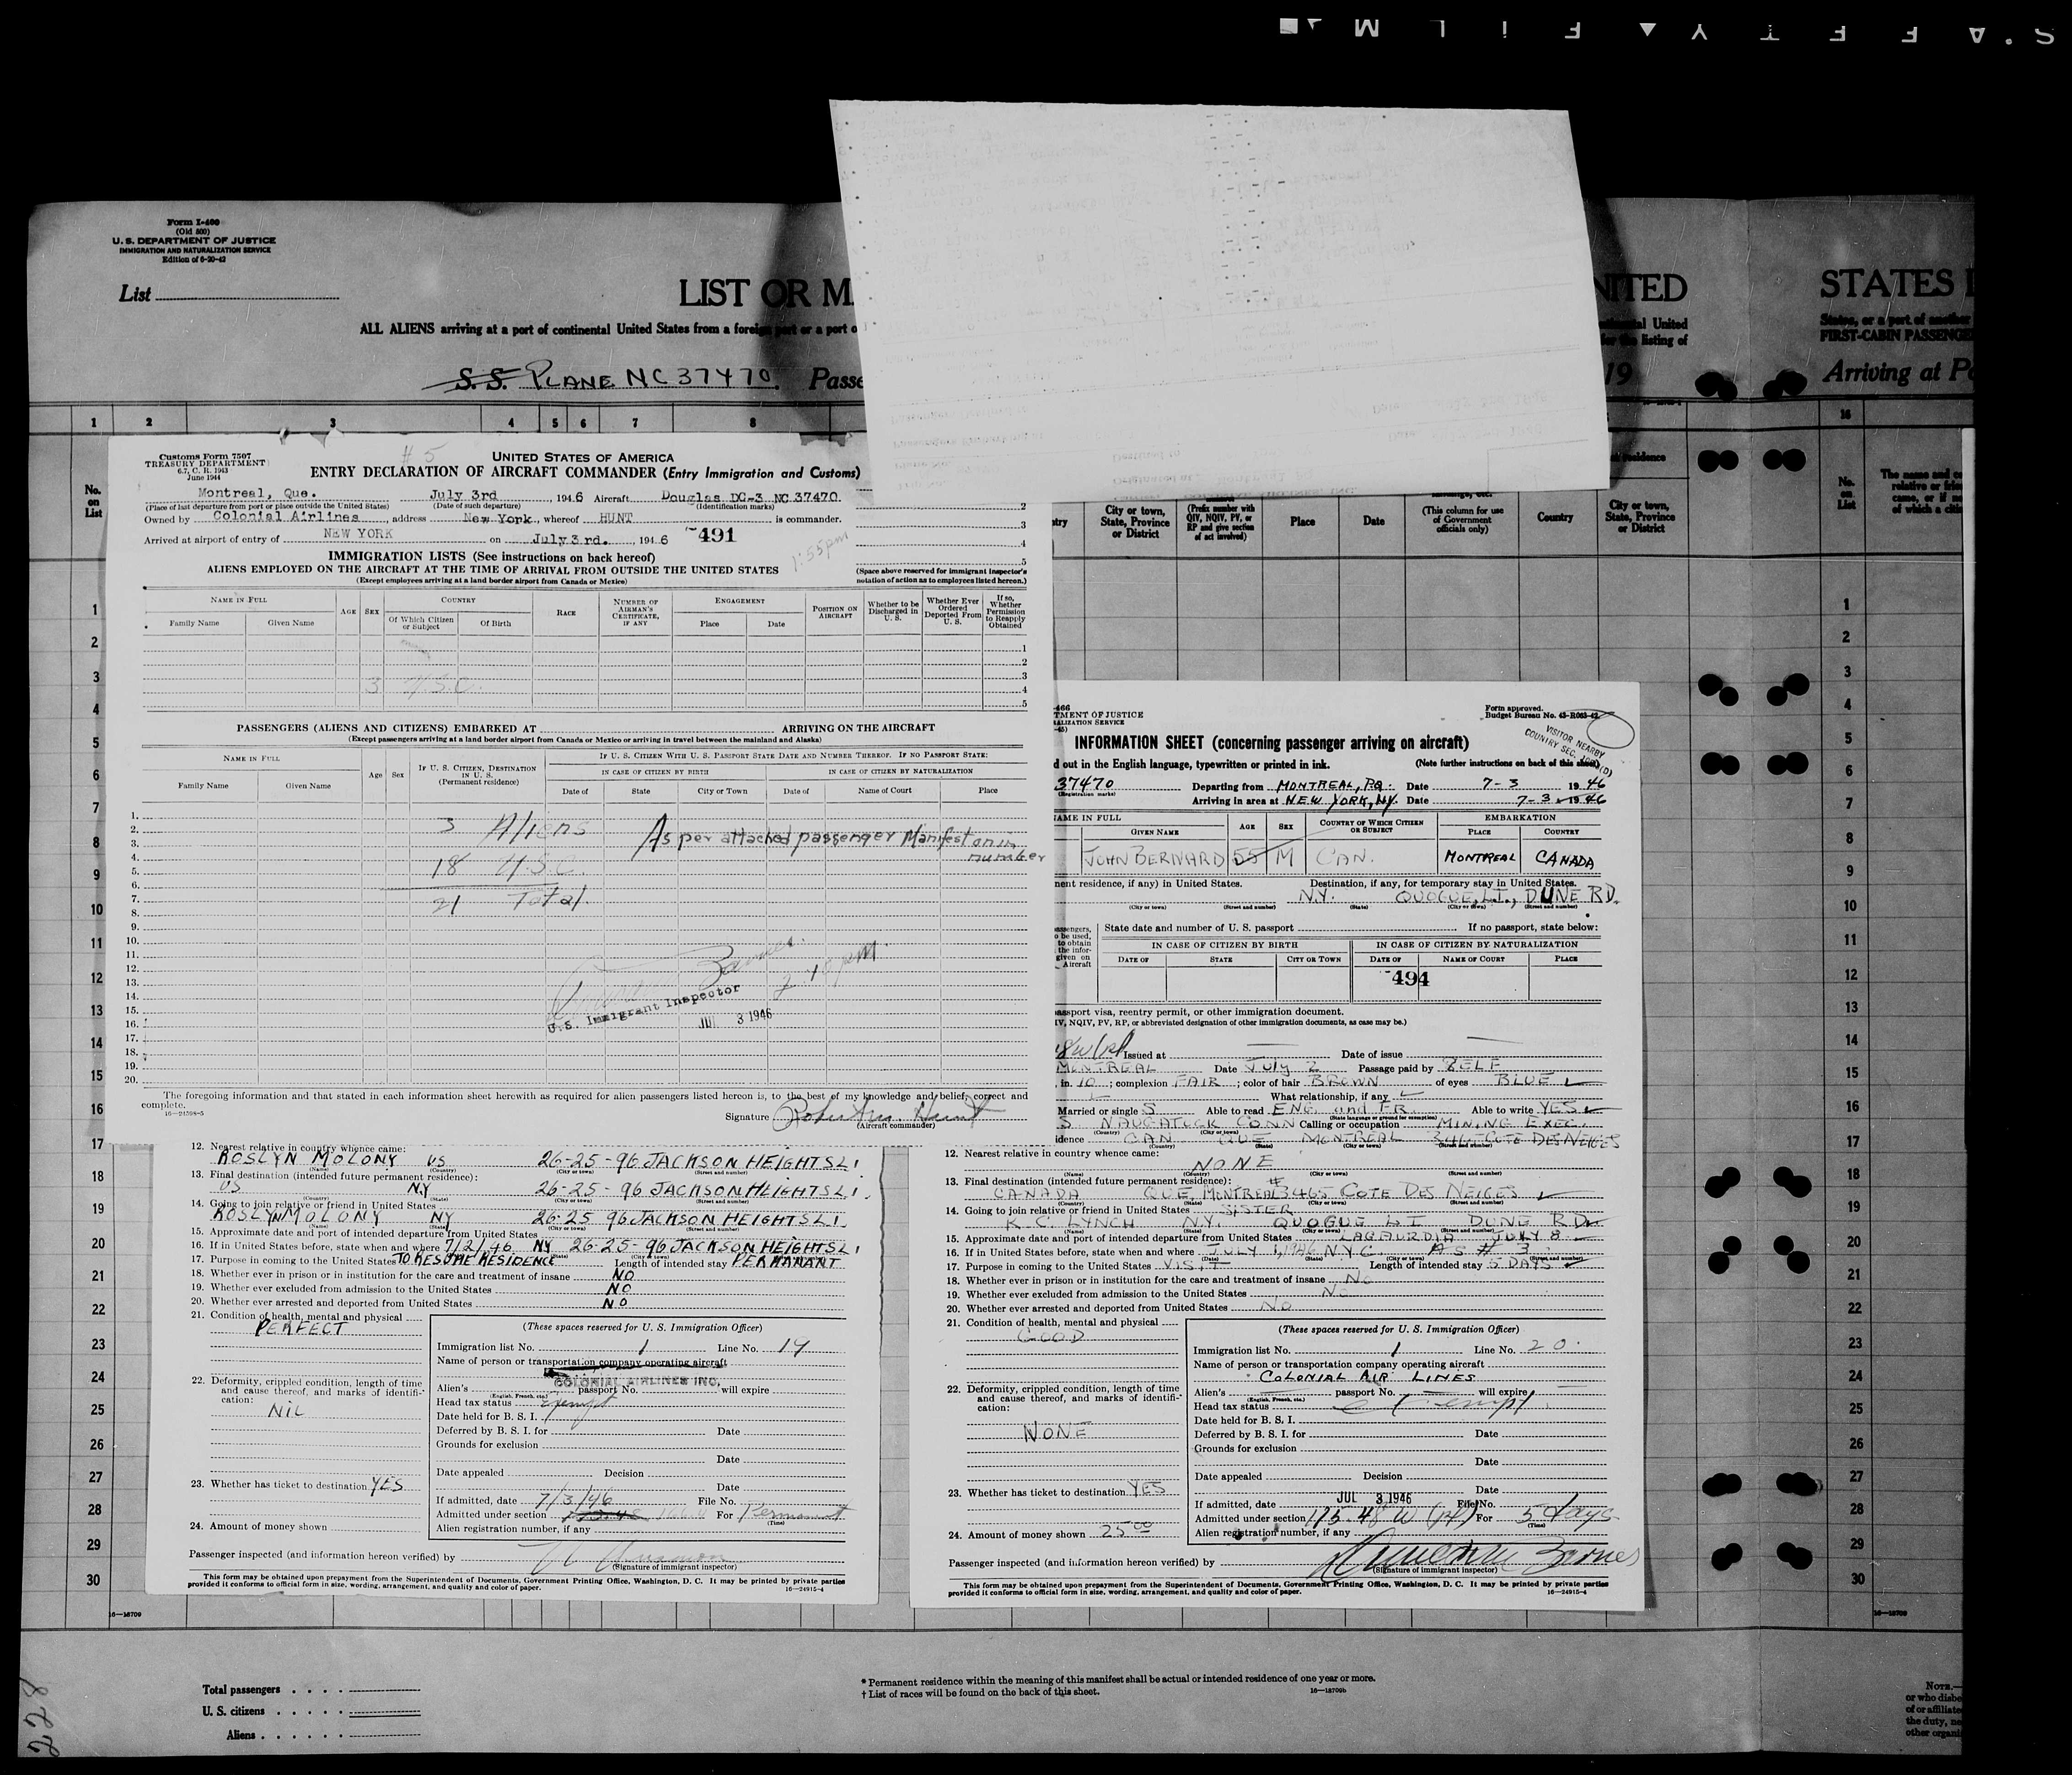 SAFETY FILM
Form I-400
(Old 500)
U. S. DEPARTMENT OF JUSTICE
IMMIGRATION AND NATURALIZATION SERVICE
Edition of 6-20-42
List
LIST OR M
NITED
STATES
ALL ALIENS arriving at a port of continental United States from a foreign port or a port o
tinental United
for the listing of
States, or a port of another
FIRST-CABIN PASSENGE
S.S. PLANE NC 37470 Passe
19
Arriving at Po
1 2 3 4 5 6 7 8
16
No. on List
Customs Form 7507
TREASURY DEPARTMENT
6.7, C. R. 1943
June 1944
# 5
UNITED STATES OF AMERICA
ENTRY DECLARATION OF AIRCRAFT COMMANDER (Entry Immigration and Customs)
Montreal, Que. July 3rd 1946 Aircraft Douglas DC-3 NC 37470.
(Place of last departure from port or place outside the United States) (Date of such departure) (Identification marks)
Owned by Colonial Airlines, address New York, whereof HUNT is commander.
Arrived at airport of entry of NEW YORK on July 3rd. , 1946 491
1:55pm
IMMIGRATION LISTS (See instructions on back hereof)
ALIENS EMPLOYED ON THE AIRCRAFT AT THE TIME OF ARRIVAL FROM OUTSIDE THE UNITED STATES
(Except employees arriving at a land border airport from Canada or Mexico)
2
3
4
5
(Space above reserved for immigrant inspector's notation of action as to employees listed hereon.)
NAME IN FULL AGE SEX COUNTRY RACE NUMBER OF AIRMAN'S CERTIFICATE, IF ANY ENGAGEMENT POSITION ON AIRCRAFT Whether to be Discharged in U. S. Whether Ever Ordered Deported From U. S. If so, Whether Permission to Reapply Obtained
Family Name Given Name Of Which Citizen or Subject Of Birth Place Date
1
2
3
3 U.S.C. 4
5
PASSENGERS (ALIENS AND CITIZENS) EMBARKED AT ARRIVING ON THE AIRCRAFT
(Except passengers arriving at a land border airport from Canada or Mexico or arriving in travel between the mainland and Alaska)
NAME IN FULL Age Sex IF U. S. CITIZEN, DESTINATION IN U. S. (Permanent residence) IF U. S. CITIZEN WITH U. S. PASSPORT STATE DATE AND NUMBER THEREOF. IF NO PASSPORT STATE:
IN CASE OF CITIZEN BY BIRTH IN CASE OF CITIZEN BY NATURALIZATION
Family Name Given Name Date of State City or Town Date of Name of Court Place
1.
2. 3 Aliens As per attached passenger Manifest on in
3. number
4. 18 U.S.C.
5.
6.
7. 21 Total.
8.
9.
10.
11.
12.
13. 2:40 pm
14.
15. U.S. Immigrant Inspector
16. JUL 3 1946
17.
18.
19.
20.
The foregoing information and that stated in each information sheet herewith as required for alien passengers listed hereon is, to the best of my knowledge and belief, correct and complete.
16—24598-5
Signature
(Aircraft commander)
12. Nearest relative in country whence came:
ROSLYN MOLONY US 26-25-96 JACKSON HEIGHTS L I
(Name) (Country) (City or town) (Street and number)
13. Final destination (intended future permanent residence):
US NY 26-25-96 JACKSON HEIGHTS L I
(Country) (State) (City or town) (Street and number)
14. Going to join relative or friend in United States
ROSLYN MOLONY NY 26-25 96 JACKSON HEIGHTS L I
(Name) (State) (City or town) (Street and number)
15. Approximate date and port of intended departure from United States
16. If in United States before, state when and where 7/2/46 NY 26-25-96 JACKSON HEIGHTS L I
17. Purpose in coming to the United States TO RESUME RESIDENCE Length of intended stay PERMANANT
18. Whether ever in prison or in institution for the care and treatment of insane NO
19. Whether ever excluded from admission to the United States NO
20. Whether ever arrested and deported from United States NO
21. Condition of health, mental and physical
PERFECT
(These spaces reserved for U. S. Immigration Officer)
Immigration list No. 1 Line No. 19
Name of person or transportation company operating aircraft
COLONIAL AIRLINES INC.
22. Deformity, crippled condition, length of time and cause thereof, and marks of identification:
NIL
Alien's (English, French, etc.) passport No. will expire
Head tax status Exempt
Date held for B. S. I.
Deferred by B. S. I. for Date
Grounds for exclusion
Date
Date appealed Decision
Date
23. Whether has ticket to destination YES
If admitted, date 7/3/46 File No.
Admitted under section For Permanent
(Time)
Alien registration number, if any
24. Amount of money shown
Passenger inspected (and information hereon verified) by
(Signature of immigrant inspector)
This form may be obtained upon prepayment from the Superintendent of Documents, Government Printing Office, Washington, D. C. It may be printed by private parties provided it conforms to official form in size, wording, arrangement, and quality and color of paper.
16—24915-4
City or town, State, Province or District
(Prefix number with QIV, NQIV, PV, or RP and give section of act involved)
Place Date
(This column for use of Government officials only)
Country
City or town, State, Province or District
No. on List
The name and
relative or frie
came, or if
of which a citiz
TMENT OF JUSTICE
ALIZATION SERVICE
Form approved.
Budget Bureau No. 43-R063-42.
VISITOR NEARBY COUNTRY SEC.
INFORMATION SHEET (concerning passenger arriving on aircraft)
d out in the English language, typewritten or printed in ink. (Note further instructions on back of this sheet)
37470 Departing from MONTREAL, P.Q. Date 7-3 1946
Arriving in area at NEW YORK, N.Y. Date 7-3 1946
NAME IN FULL AGE SEX COUNTRY OF WHICH CITIZEN OR SUBJECT EMBARKATION
GIVEN NAME PLACE COUNTRY
JOHN BERNARD 55 M CAN. MONTREAL CANADA
ent residence, if any) in United States. Destination, if any, for temporary stay in United States.
N.Y. QUOGUE, L.I., DUNE RD.
(City or town) (Street and number) (State) (City or town) (Street and number)
State date and number of U. S. passport If no passport, state below:
IN CASE OF CITIZEN BY BIRTH IN CASE OF CITIZEN BY NATURALIZATION
DATE OF STATE CITY OR TOWN DATE OF NAME OF COURT PLACE
494
assport visa, reentry permit, or other immigration document.
IV, NQIV, PV, RP, or abbreviated designation of other immigration documents, as case may be.)
Issued at Date of issue
MONTREAL Date JULY 2 Passage paid by SELF
in. 10 ; complexion FAIR ; color of hair BROWN of eyes BLUE
What relationship, if any
Married or single S Able to read ENG. and FR. Able to write YES
S NAUGATUCK CONN Calling or occupation MINING EXEC.
idence CAN QUE MONTREAL 3465 COTE DES NEIGES
12. Nearest relative in country whence came:
NONE
(Name) (Country) (City or town) (Street and number)
13. Final destination (intended future permanent residence):
CANADA QUE, MONTREAL #3465 COTE DES NEIGES
14. Going to join relative or friend in United States SISTER
K. C. LYNCH N.Y. QUOGUE L I DUNE RD.
15. Approximate date and port of intended departure from United States LAGAURDIA JULY 8
16. If in United States before, state when and where JULY 1, 1946 N.Y.C. AS # 3
17. Purpose in coming to the United States VISIT Length of intended stay 5 DAYS
18. Whether ever in prison or in institution for the care and treatment of insane No
19. Whether ever excluded from admission to the United States No
20. Whether ever arrested and deported from United States No
21. Condition of health, mental and physical
GOOD
(These spaces reserved for U. S. Immigration Officer)
Immigration list No. 1 Line No. 20.
Name of person or transportation company operating aircraft
COLONIAL AIR LINES
22. Deformity, crippled condition, length of time and cause thereof, and marks of identification:
NONE
Alien's (English, French, etc.) passport No. will expire
Head tax status exempt
Date held for B. S. I.
Deferred by B. S. I. for Date
Grounds for exclusion
Date
Date appealed Decision
Date
23. Whether has ticket to destination YES
If admitted, date JUL 3 1946 File No.
Admitted under section For 5 days
(Time)
Alien registration number, if any
24. Amount of money shown 25 00
Passenger inspected (and information hereon verified) by
(Signature of immigrant inspector)
This form may be obtained upon prepayment from the Superintendent of Documents, Government Printing Office, Washington, D. C. It may be printed by private parties provided it conforms to official form in size, wording, arrangement, and quality and color of paper.
16—24915-4
1
2
3
4
5
6
7
8
9
10
11
12
13
14
15
16
17
18
19
20
21
22
23
24
25
26
27
28
29
30
16—18709
Total passengers
U. S. citizens
Aliens
* Permanent residence within the meaning of this manifest shall be actual or intended residence of one year or more.
† List of races will be found on the back of this sheet.
16—18709b
NOTE.—
or who disbe
of or affiliate
the duty, ne
other organi
228